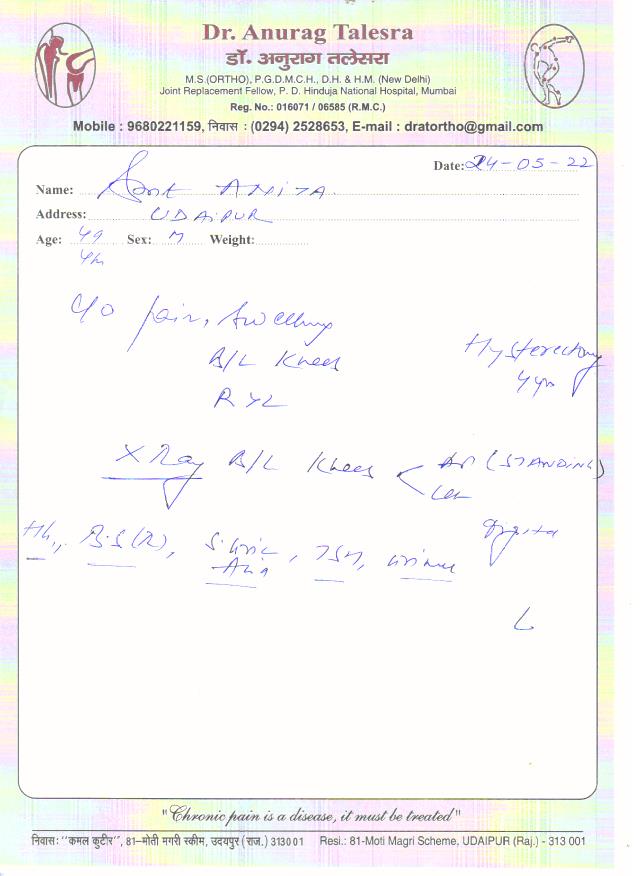 Dr. Anurag Talesra
डॉ. अनुराग तलेसरा
M.S.(ORTHO), P.G.D.M.C.H., D.H. & H.M. (New Delhi)
Joint Replacement Fellow, P. D. Hinduja National Hospital, Mumbai
Reg. No.: 016071 / 06585 (R.M.C.)
Mobile : 9680221159, निवास : (0294) 2528653, E-mail : dratortho@gmail.com
Date: 24-05-22
Name: Smt AMITA
Address: UDAIPUR
Age: 49 Sex: M Weight:
c/o pain, Swelling
B/L Knees
R > L
Hysterectomy
4 yr
X Ray B/L Knees AP (STANDING)
Lat
Digital
Hb, B.S (R), S. Uric Acid, TSH, Urine
"Chronic pain is a disease, it must be treated"
निवास: "कमल कुटीर", 81-मोती मगरी स्कीम, उदयपुर (राज.) 313001 Resi.: 81-Moti Magri Scheme, UDAIPUR (Raj.) - 313 001